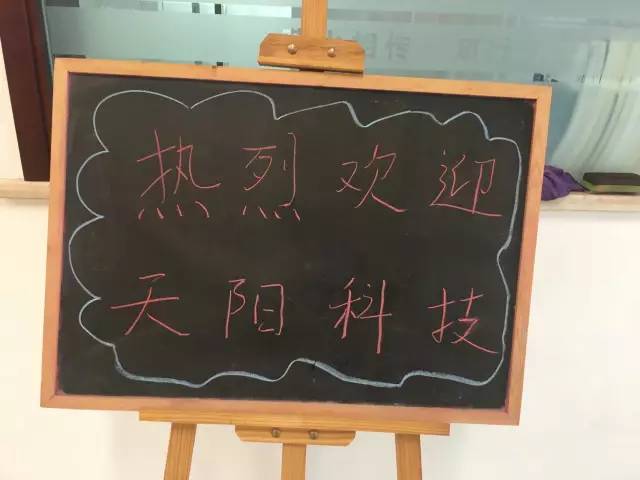 热烈欢迎
天阳科技